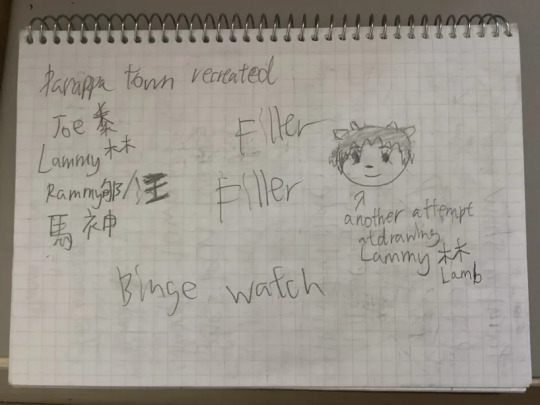 Parappa town recreated
Joe 泰
Lammy 林
Rammy
馬 神
Filler
Filler
Binge watch
another attempt
at drawing
Lammy 林
Lamb